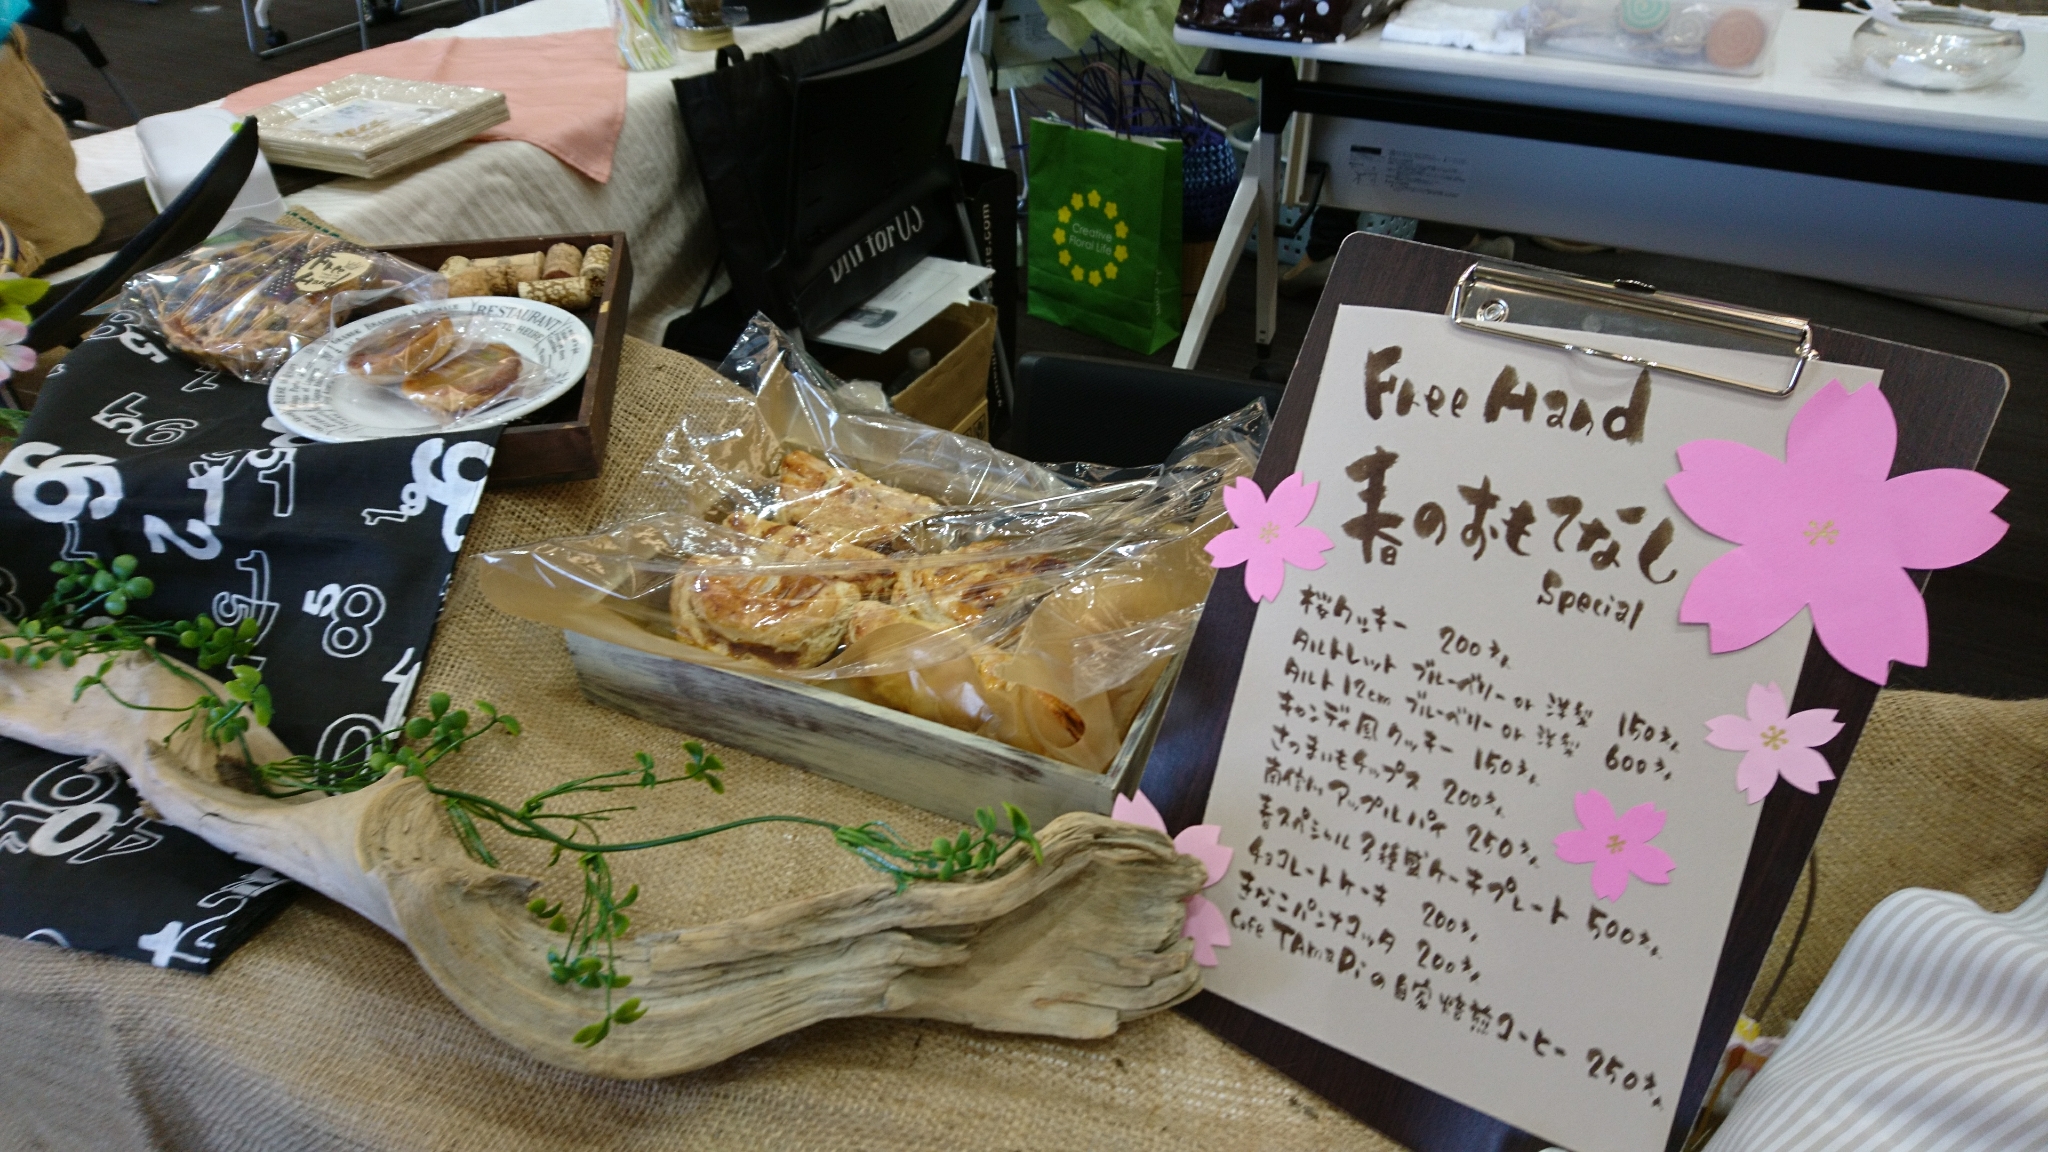 Free Hand
春のおもてなし
Special
桜クッキー 200えん
タルトレット ブルーベリー or 洋梨 150えん
タルト12cm ブルーベリー or 洋梨 600えん
キャンディ風クッキー 150えん
さつまいもチップス 200えん
南信州アップルパイ 250えん
春スペシャル3種盛ケーキプレート 500えん
チョコレートケーキ 200えん
きなこパンナコッタ 200えん
Cafe TAMaDiの自家焙煎コーヒー 250えん
Creative
Floral Life
Free
Hand
RESTAURANT